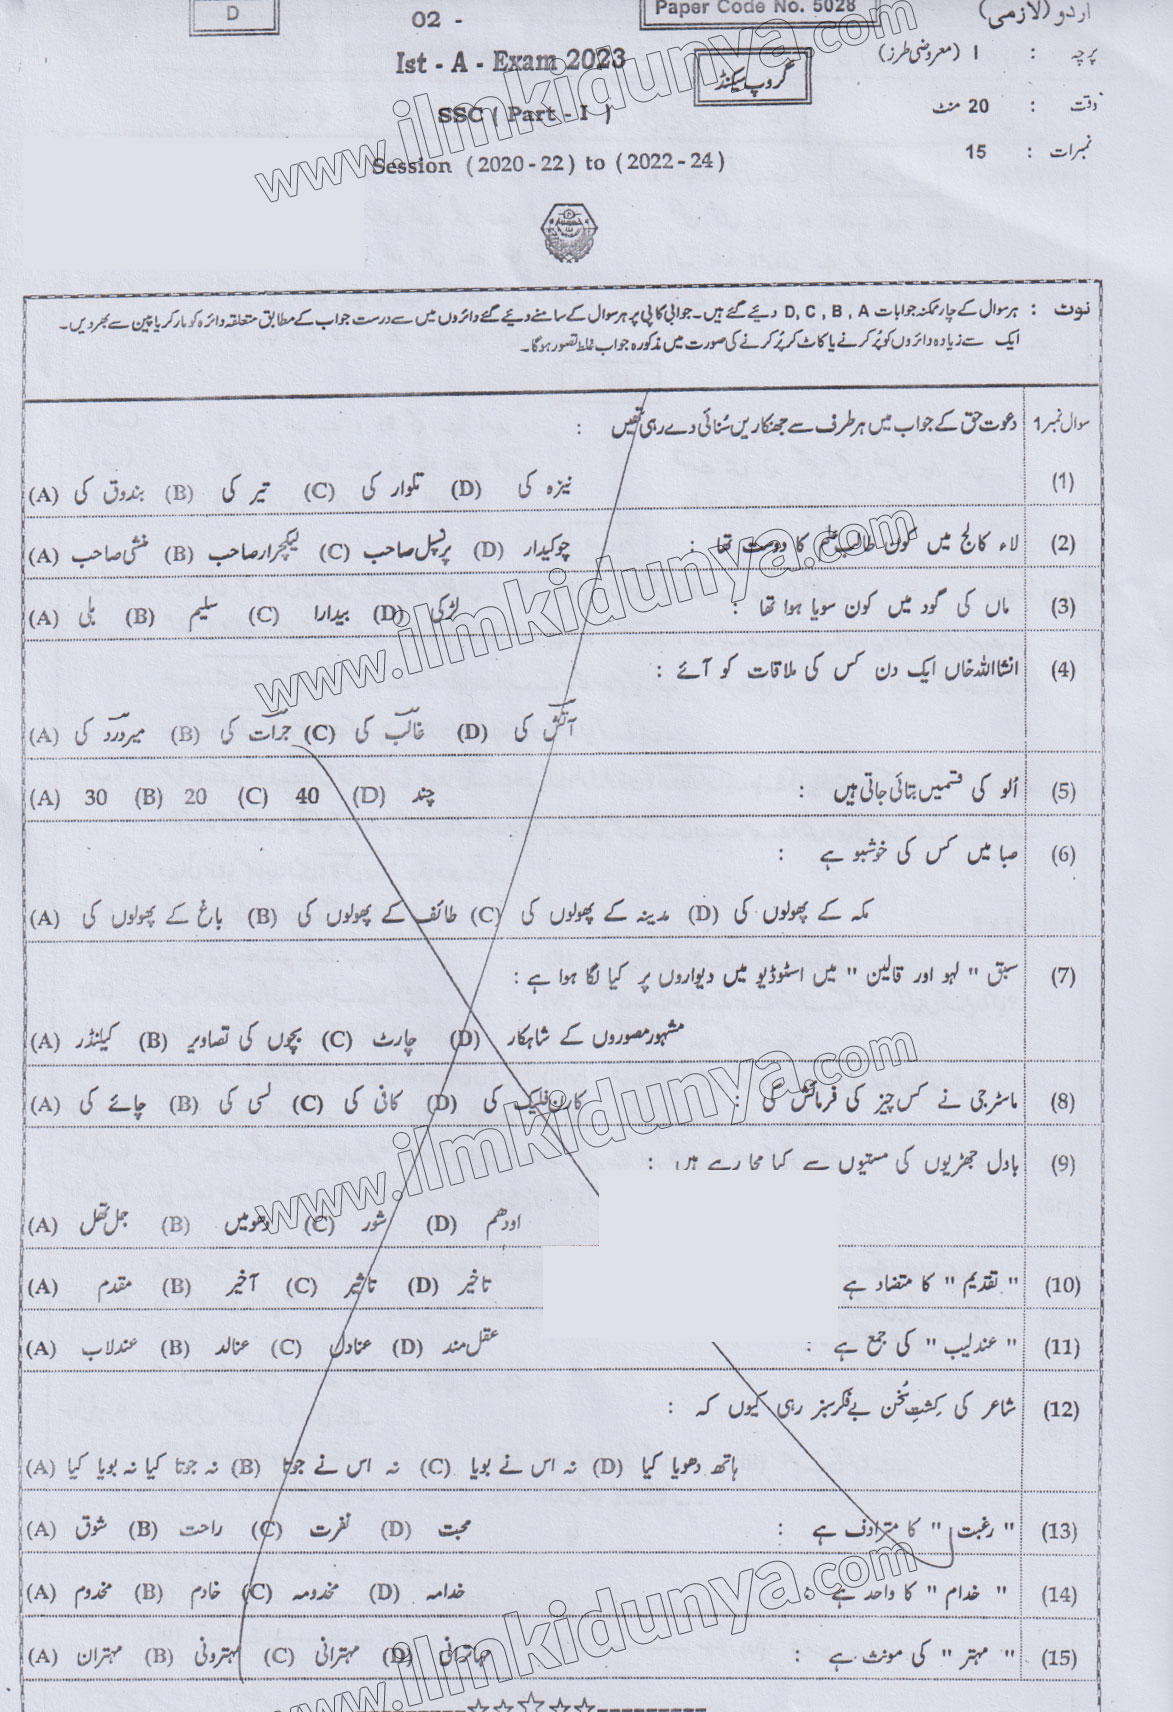 D
02 -
Paper Code No. 5028
اردو (لازمی)
Ist - A - Exam 2023
گروپ سیکنڈ
پرچہ : I (معروضی طرز)
SSC ( Part - I )
وقت : 20 منٹ
Session ( 2020 - 22 ) to ( 2022 - 24 )
نمبرات : 15
نوٹ : ہر سوال کے چار ممکنہ جوابات D, C, B, A دیئے گئے ہیں۔ جوابی کاپی پر ہر سوال کے سامنے دیئے گئے دائروں میں سے درست جواب کے مطابق متعلقہ دائرہ کو مارکر یا پین سے بھر دیں۔
ایک سے زیادہ دائروں کو پُر کرنے یا کاٹ کر پُر کرنے کی صورت میں مذکورہ جواب غلط تصور ہوگا۔
سوال نمبر 1 دعوت حق کے جواب میں ہر طرف سے جھنکاریں سُنائی دے رہی تھیں :
(1) (A) بندوق کی (B) تیر کی (C) تلوار کی (D) نیزہ کی
(2) لاء کالج میں کون طالب علم کا دوست تھا : (A) منشی صاحب (B) لیکچرار صاحب (C) پرنسپل صاحب (D) چوکیدار
(3) ماں کی گود میں کون سویا ہوا تھا : (A) بلی (B) سلیم (C) بیدارا (D) لڑکی
(4) انشا اللہ خاں ایک دن کس کی ملاقات کو آئے :
(A) میر درد کی (B) جرات کی (C) غالب کی (D) آتش کی
(5) اُلو کی قسمیں بتائی جاتی ہیں : (A) 30 (B) 20 (C) 40 (D) چند
(6) صبا میں کس کی خوشبو ہے :
(A) باغ کے پھولوں کی (B) طائف کے پھولوں کی (C) مدینہ کے پھولوں کی (D) مکہ کے پھولوں کی
(7) سبق " لہو اور قالین " میں اسٹوڈیو میں دیواروں پر کیا لگا ہوا ہے :
(A) کیلنڈر (B) بچوں کی تصاویر (C) چارٹ (D) مشہور مصوروں کے شاہکار
(8) ماسٹر جی نے کس چیز کی فرمائش کی : (A) چائے کی (B) لسی کی (C) کافی کی (D) کارن فلیک کی
(9) بادل جھڑیوں کی مستیوں سے کیا مچا رہے ہیں :
(A) جل تھل (B) دھومیں (C) شور (D) اودھم
(10) " تقدیم " کا متضاد ہے (A) مقدم (B) آخیر (C) تاثیر (D) تاخیر
(11) " عندلیب " کی جمع ہے : (A) عندلاب (B) عنالد (C) عنادل (D) عقل مند
(12) شاعر کی کِشتِ سُخن بے فکر سبز رہی کیوں کہ :
(A) نہ جوتا گیا نہ بویا گیا (B) نہ اس نے جوتا (C) نہ اس نے بویا (D) ہاتھ دھویا گیا
(13) " رغبت " کا مترادف ہے : (A) شوق (B) راحت (C) نفرت (D) محبت
(14) " خدام " کا واحد ہے : (A) مخدوم (B) خادم (C) مخدومہ (D) خدامہ
(15) " مہتر " کی مونث ہے : (A) مہتران (B) مہترونی (C) مہترانی (D) مہاترانی
www.ilmkidunya.com
www.ilmkidunya.com
www.ilmkidunya.com
www.ilmkidunya.com